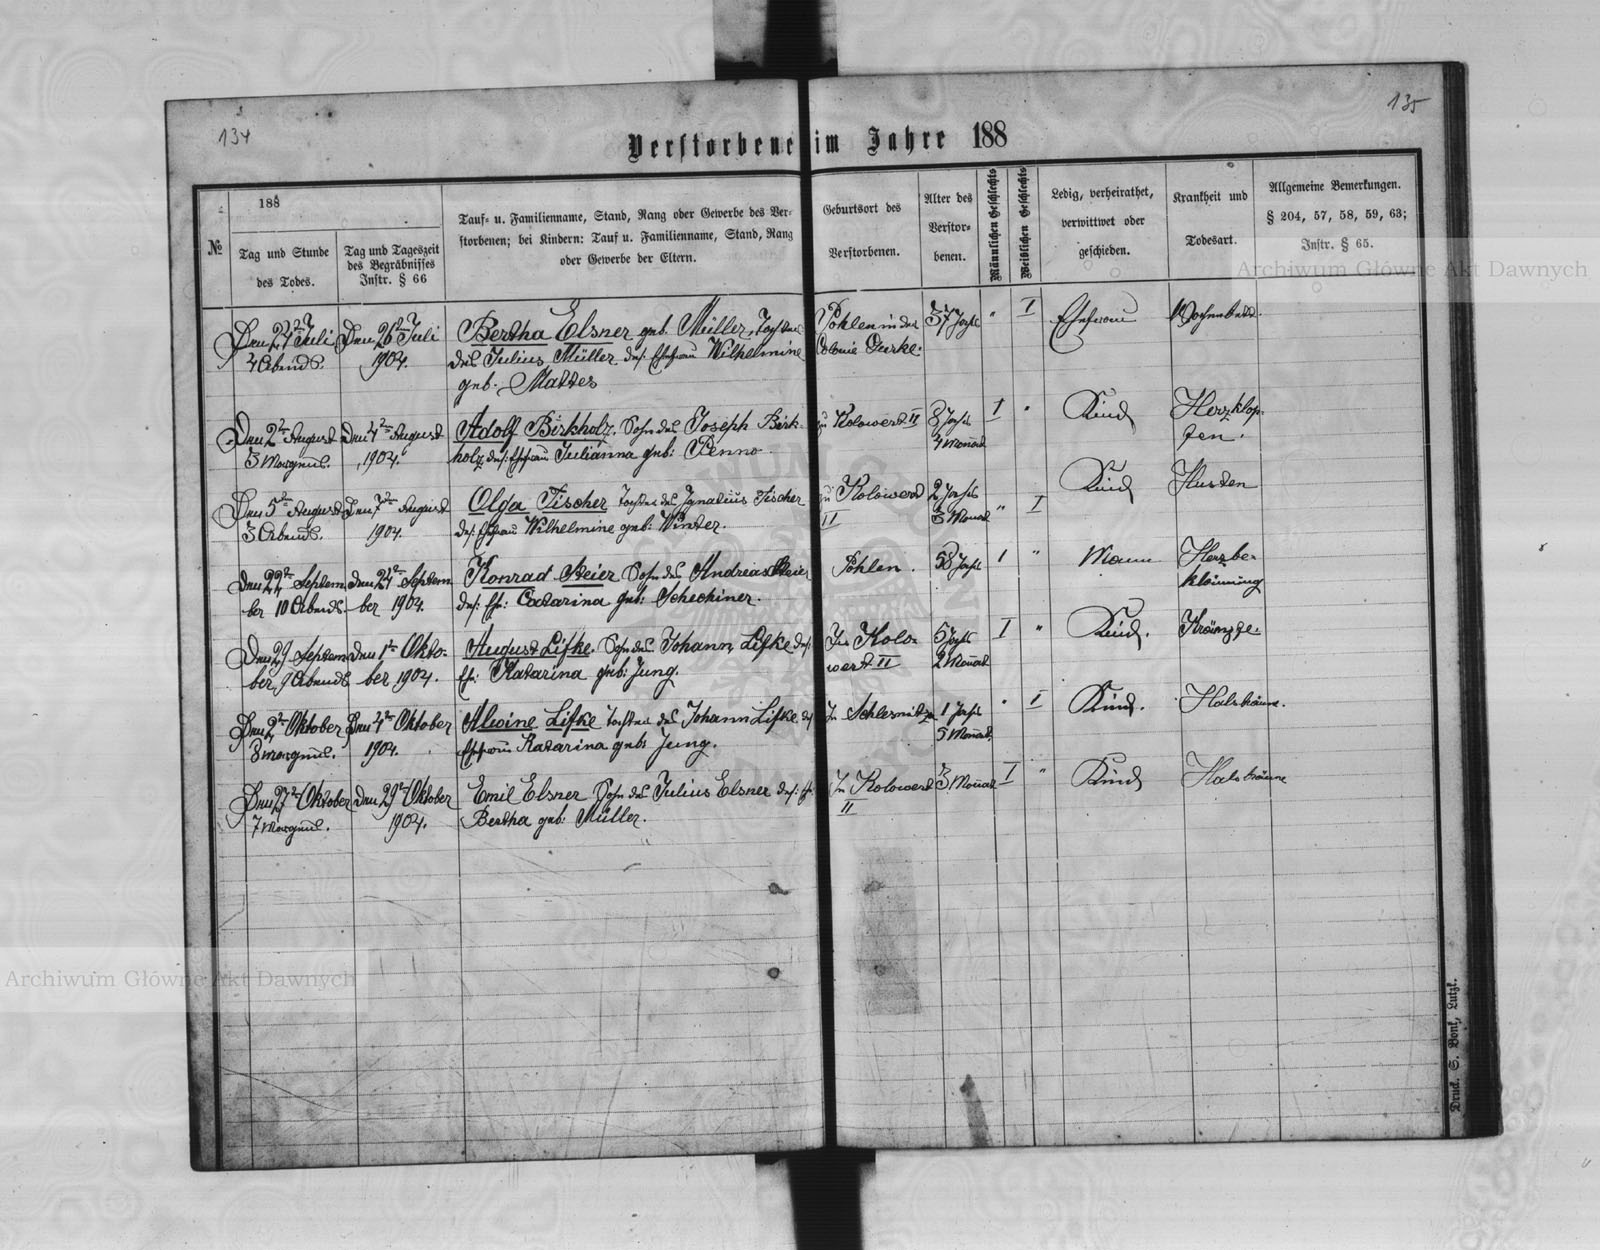 134
135
Verstorbene im Jahre 188
№
188
Tag und Stunde
des Todes.
Tag und Tageszeit
des Begräbnisses
Instr. § 66
Tauf- u. Familienname, Stand, Rang oder Gewerbe des Ver-
storbenen; bei Kindern: Tauf u. Familienname, Stand, Rang
oder Gewerbe der Eltern.
Geburtsort des
Verstorbenen.
Alter des
Verstor-
benen.
Männlichen Geschlechts
Weiblichen Geschlechts
Ledig, verheirathet,
verwittwet oder
geschieden.
Krankheit und
Todesart.
Allgemeine Bemerkungen.
§ 204, 57, 58, 59, 63;
Instr. § 65.
Den Juli
4 Abends.
Den 26 Juli
1904.
Bertha Elsner geb. Müller, Tochter
des Julius Müller des: Ehefrau Wilhelmine
geb. Mattes
Pohlen in der
Colonie
37 Jahr
" I
Ehefrau
Wochenbett.
Den 2ten August
3 Morgens.
Den 4ten August
1904.
Adolf Birkholz. Sohn des Joseph Birk-
holz, des: Ehefrau Julianna geb: Benno
zu Kolowert II
8 Jahr
4 Monat
I "
Kind
Herzklop-
fen.
Den 5ten August
3 Abends.
Den 7ten August
1904.
Olga Fischer Tochter des Ignatius Fischer
des: Ehefrau Wilhelmine geb: Winter.
zu Kolowert
II
2 Jahr
3 Monat
" I
Kind
Husten
Den 22ten Septem-
ber 10 Abends.
Den 24ten Septem-
ber 1904.
Konrad Beier Sohn des Andreas Beier
des: Ehe: Catarina geb:
Pohlen.
58 Jahr
I "
Mann
Herzbe-
klemmung
Den 29 Septem-
ber, 9 Abends
Den 1ten Okto-
ber 1904.
August Lifke. Sohn des Johann Lifke des:
Ehe: Katarina geb: Jung.
In Kolo-
wert II
5 Jahr
2 Monat
I "
Kind.
Krämpfe.
Den 2ten Oktober
8 morgens.
Den 4ten Oktober
1904.
Alwine Lifke Tochter des Johann Lifke des
Ehefrau Katarina geb: Jung.
In
1 Jahr
5 Monat.
" I
Kind.
Halsbräune.
Den 27ten Oktober
7 Morgens.
Den 29ten Oktober
1904.
Emil Elsner Sohn des Julius Elsner des: Eh:
Bertha geb: Müller.
In Kolowert
II
3 Monat
I "
Kind
Halsbräune
Druck S. Bonk, Lutzk.
Archiwum Główne Akt Dawnych
Archiwum Główne Akt Dawnych